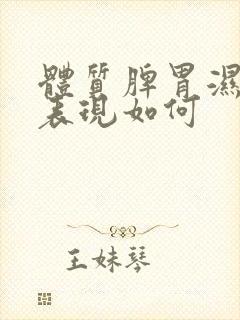 體質脾胃濕
表現如何
王妹琴